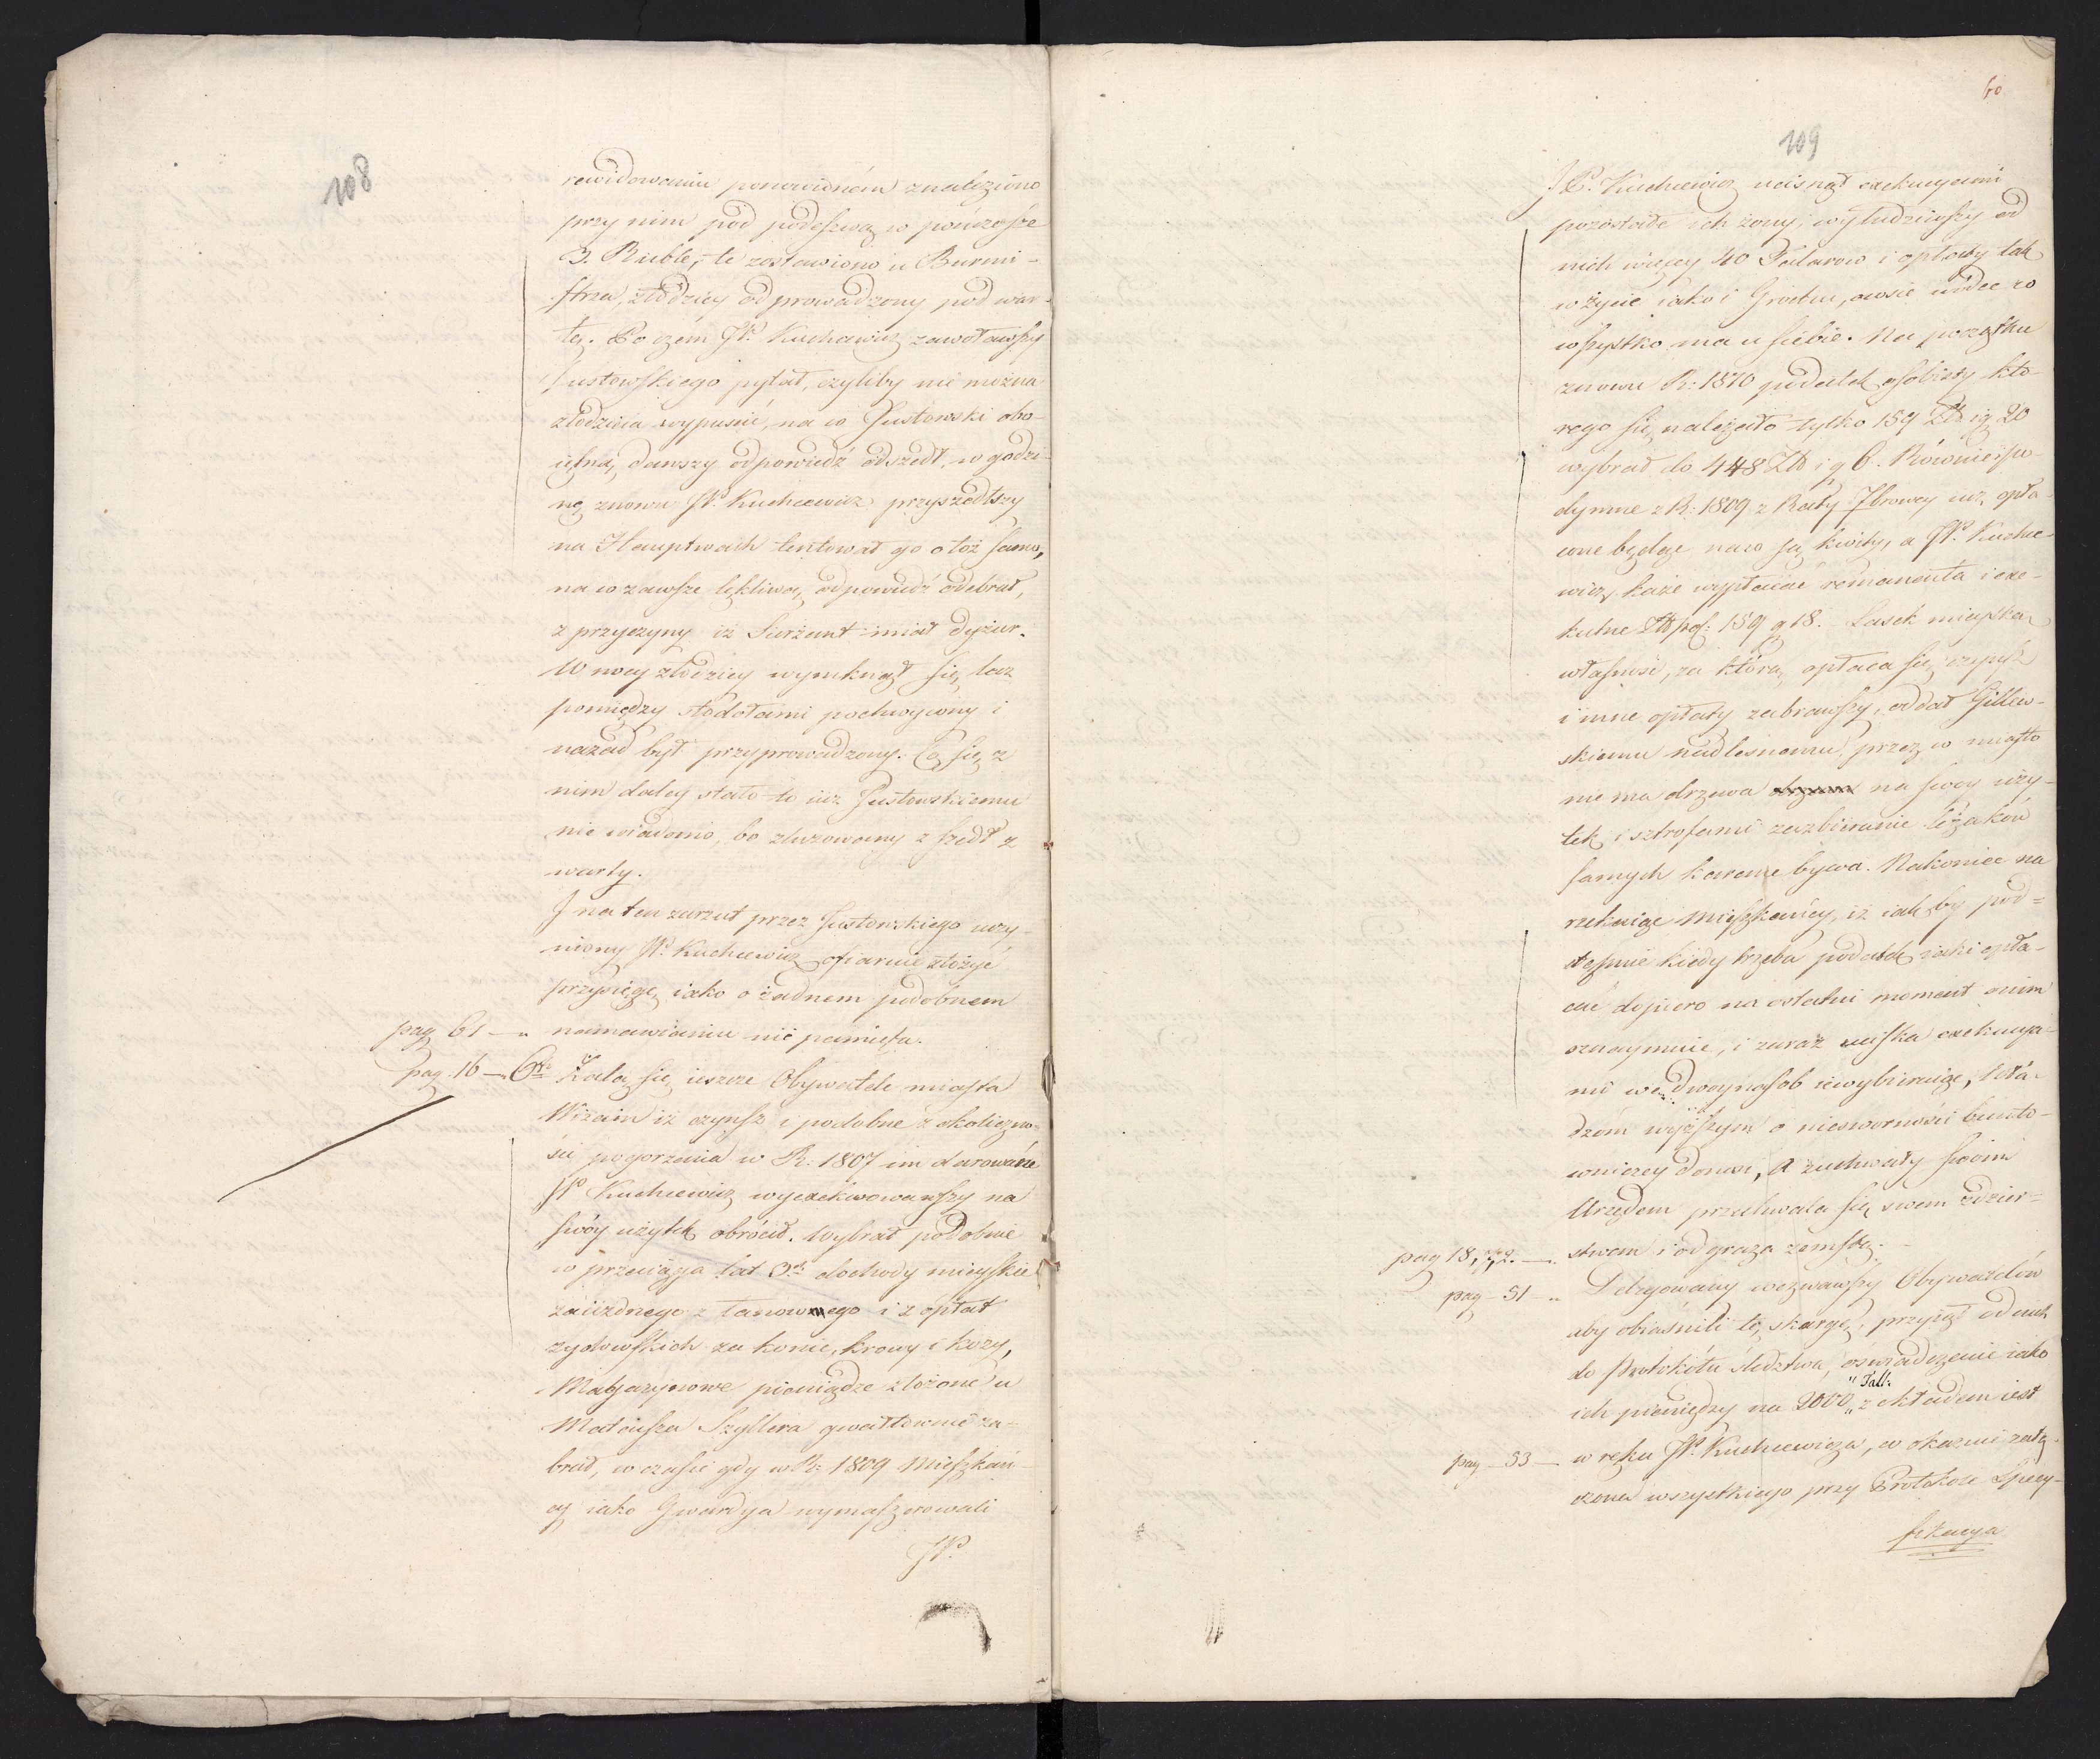 108
rewidowaniu ponowionem znaleziono
przy nim pod podeszwą w pończosze
3. Ruble, te zostawiono u Burmi-
strza, złodziey odprowadzony pod war-
tę. Po czém JP. Kuchcewicz zawoławszy
Justowskiego pytał, czyliby nie można
złodzieia wypuscić, na co Justowski obo-
iętną dawszy odpowiedź odszedł, w godzi-
nę znowu JP. Kuchcewicz przyszedłszy
na Hauptwach tentował go o toż samo,
na co zawsze lękliwą odpowiedź odebrał,
z przyczyny iż Sierżant miał dyżur.
W nocy złodziey wymknął się, lecz
pomiędzy stodołami pochwycony i
nazad był przyprowadzony. Co się z
nim daley stało to iuż Justowskiemu
nie wiadomo, bo zluzowany zszedł z
warty.
I na ten zarzut przez Justowskiego uczy-
niony JP. Kuchcewicz ofiaruie złożyć
przysięgę iako o żadnem podobnem
pag 61 — namawianiu nie pamięta.
pag. 16 — 6to Żalą się ieszcze Obywatele miasta
Wizain iż czynsz i podobne z okoliczno-
ści pogorzenia w R: 1807 im darowane
JP Kuchcewicz wyexekwowawszy na
swóy użytek obrócił. Wybrał podobnie
w przeciągu lat 3ch dochody mieyskie
zaiezdnego z łanownego i z opłat
żydowskich za konie, krowy i kozy,
Magazynowe pieniądze złożone u
Mateusza Szyllera gwałtownie za-
brał, w czasie gdy w R: 1809 Mieszkań-
cy iako Gwardya wymaszerowali
JP.
60
109
JP. Kuchcewicz ucisnął exekucyami
pozostałe ich żony, wyłudziwszy od
nich więcey 40 Talarow i opłaty tak
w życie iako i Grochu, owsie wódce co
wszystko ma u siebie. Na początku
znowu R: 1810 podatek osobisty kto-
rego się należało tylko 159 Zł i g 20
wybrał do 448 Zł i g 6. Równie i po-
dymne z R: 1809 z Raty 7browey iuż opła-
cone będąc na co są kwity, a JP. Kuchce-
wicz każe wypłacać remanenta i exe-
kutne Zł pol: 159 g 18. Lasek mieyską
własność, za którą opłaca się czynsz
i inne opłaty zabrawszy, oddał Gillew-
skiemu nadlesnemu, przez co miasto
nie ma drzewa na swoy uży-
tek i sztrofami za zbieranie leżaków
samych karane bywa. Nakoniec na-
rzekaiąc mieszkańcy, iż iak by pod-
stępnie kiedy trzeba podatek iaki opła-
cać dopiero na ostatni moment onim
oznaymuie, i zaraz uciska exekucya-
mi we dwoynasob ie wybieraiąc, Wła-
dzóm wyższym o niesworności bunto-
wniczey donosi, A zuchwały swoim
Urzędem przechwala się swem zdzier-
pag 18, 22. — stwem i odgraża zemstą.
pag — 51 — Delegowany wezwawszy Obywatelów
aby obiaśnili tę skargę, przyiął od nich
do Protokółu śledztwa, oświadczenie iako
ich pieniędzy na 2000 „Tall: z okładem iest
pag — 53 — w ręku JP. Kuchcewicza, w okazani załą-
czona wszystkiego przy Protokole Specy-
fikacya